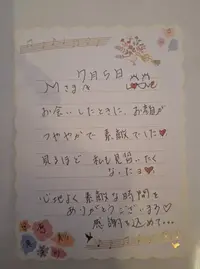 7月5日
Mさまへ
Love
お会いしたときに、お顔が
つややかで素敵でした♥
見るほど 私も見習いたく
なったョ♥
心地よく素敵な時間を
ありがとうございます♡
感謝を込めて...